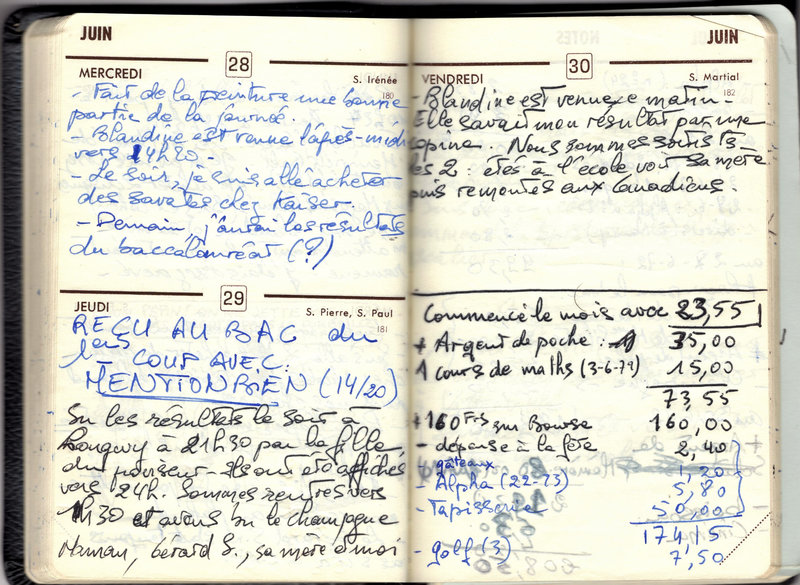 JUIN
28
MERCREDI
S. Irénée
180
- Fait de la peinture une bonne
partie de la journée.
- Blandine est venue l'après-midi
vers 14h20.
- Le soir, je suis allé acheter
des savates chez Kaiser.
- Demain, j'aurai les résultats
du baccalauréat (?)
29
JEUDI
S. Pierre, S. Paul
181
REÇU AU BAC du
1er COUP AVEC
MENTION BIEN (14/20)
Su les résultats le soir à
Longwy à 21h30 par la fille
du proviseur - Ils ont été affichés
vers 24h. Sommes rentrés vers
1h30 et avons bu le champagne
Maman, Gérard S., sa mère & moi
JUIN
30
VENDREDI
S. Martial
182
- Blandine est venue ce matin -
Elle savait mon résultat par une
copine. Nous sommes sortis ts
les 2 : étés à l'école voir sa mère
puis remontés aux Canadiens.
Commencé le mois avec 23,55
+ Argent de poche : 35,00
1 cours de maths (3-6-72) 15,00
73,55
+ 160 Frs sur Bourse 160,00
- dépense à la fête 2,40
- gâteaux 1,20
- Alpha (22-23) 5,80
- Tapisserie 50,00
174,15
- golf (3) 7,50